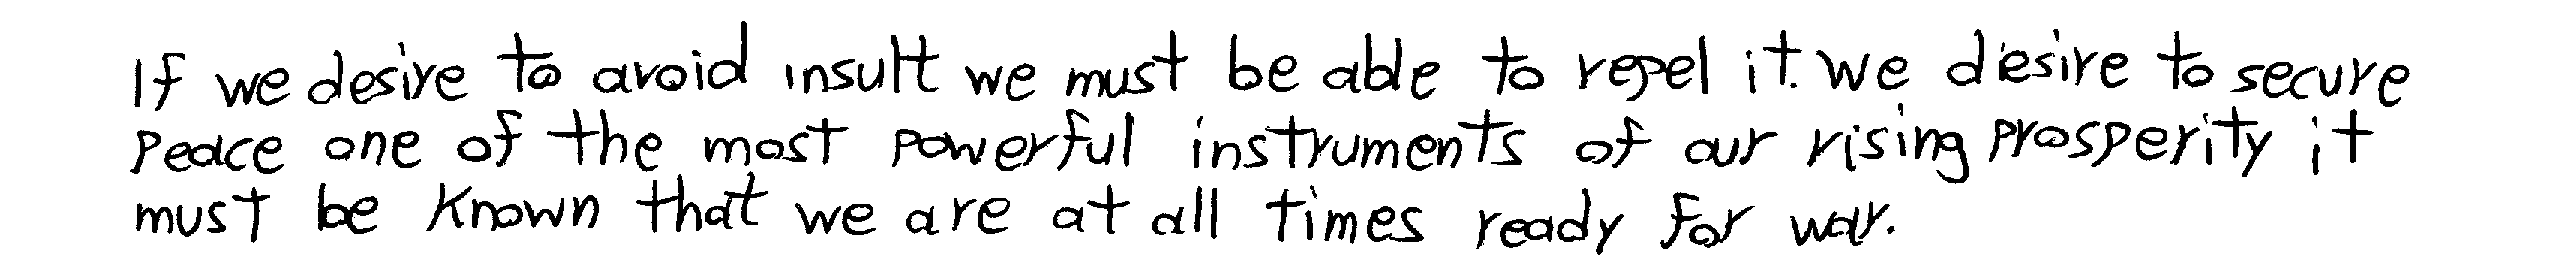 If we desire to avoid insult we must be able to repel it. we desire to secure
peace one of the most powerful instruments of our rising prosperity it
must be known that we are at all times ready for war.